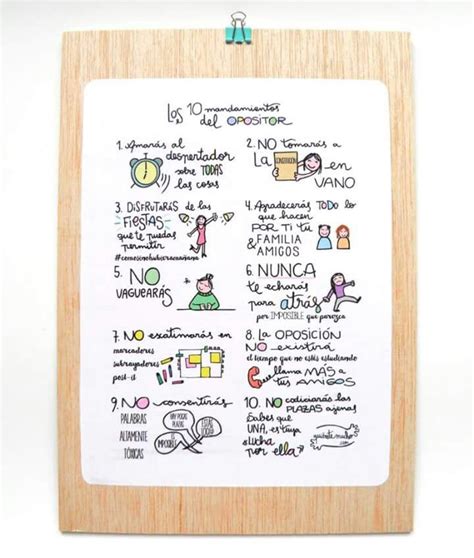 Los 10 mandamientos
del OPOSITOR
1. Amarás al
despertador
sobre TODAS
las cosas
2. NO tomarás a
La CONSTITUCIÓN en
VANO
3. DISFRUTARÁS de las
FIESTAS
que te puedas
permitir
#comosinohubieramañana
4. Agradecerás TODO lo
que hacen
POR TI tu
FAMILIA
& AMIGOS
5. NO
VAGUEARÁS
6. NUNCA
te echarás
para atrás
por IMPOSIBLE que parezca
7. NO escatimarás en
marcadores
subrayadores
post-it
8. La OPOSICIÓN
NO existirá
el tiempo que no estés estudiando
llama MÁS a
tus AMIGOS
9. NO consentirás
PALABRAS
ALTAMENTE
TÓXICAS
HAY POCAS
PLAZAS
ES
IMPOSIBLE
10. NO codiciarás las
PLAZAS ajenas
Sabes que
UNA, es tuya
¡lucha
por ella!